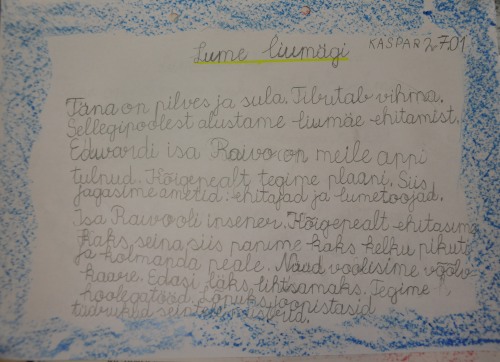 Lume liumägi KASPAR 2. 7.01
Täna on pilves ja sula. Tibutab vihma.
Sellegipoolest alustame liumäe ehitamist.
Edwardi isa Raivo on meile appi
tulnud. Kõigepealt tegime plaani. Siis
jagasime ametid: ehitajad ja lumetoojad.
Isa Raivo oli insener. Kõigepealt ehitasime
kaks seina, siis panime kaks kelku pikuti
ja kolmanda peale. Naad voolisime
kaare. Edasi läks lihtsamaks. Tegime
hoolega tööd. Lõpuks joonistasid
tüdrukud